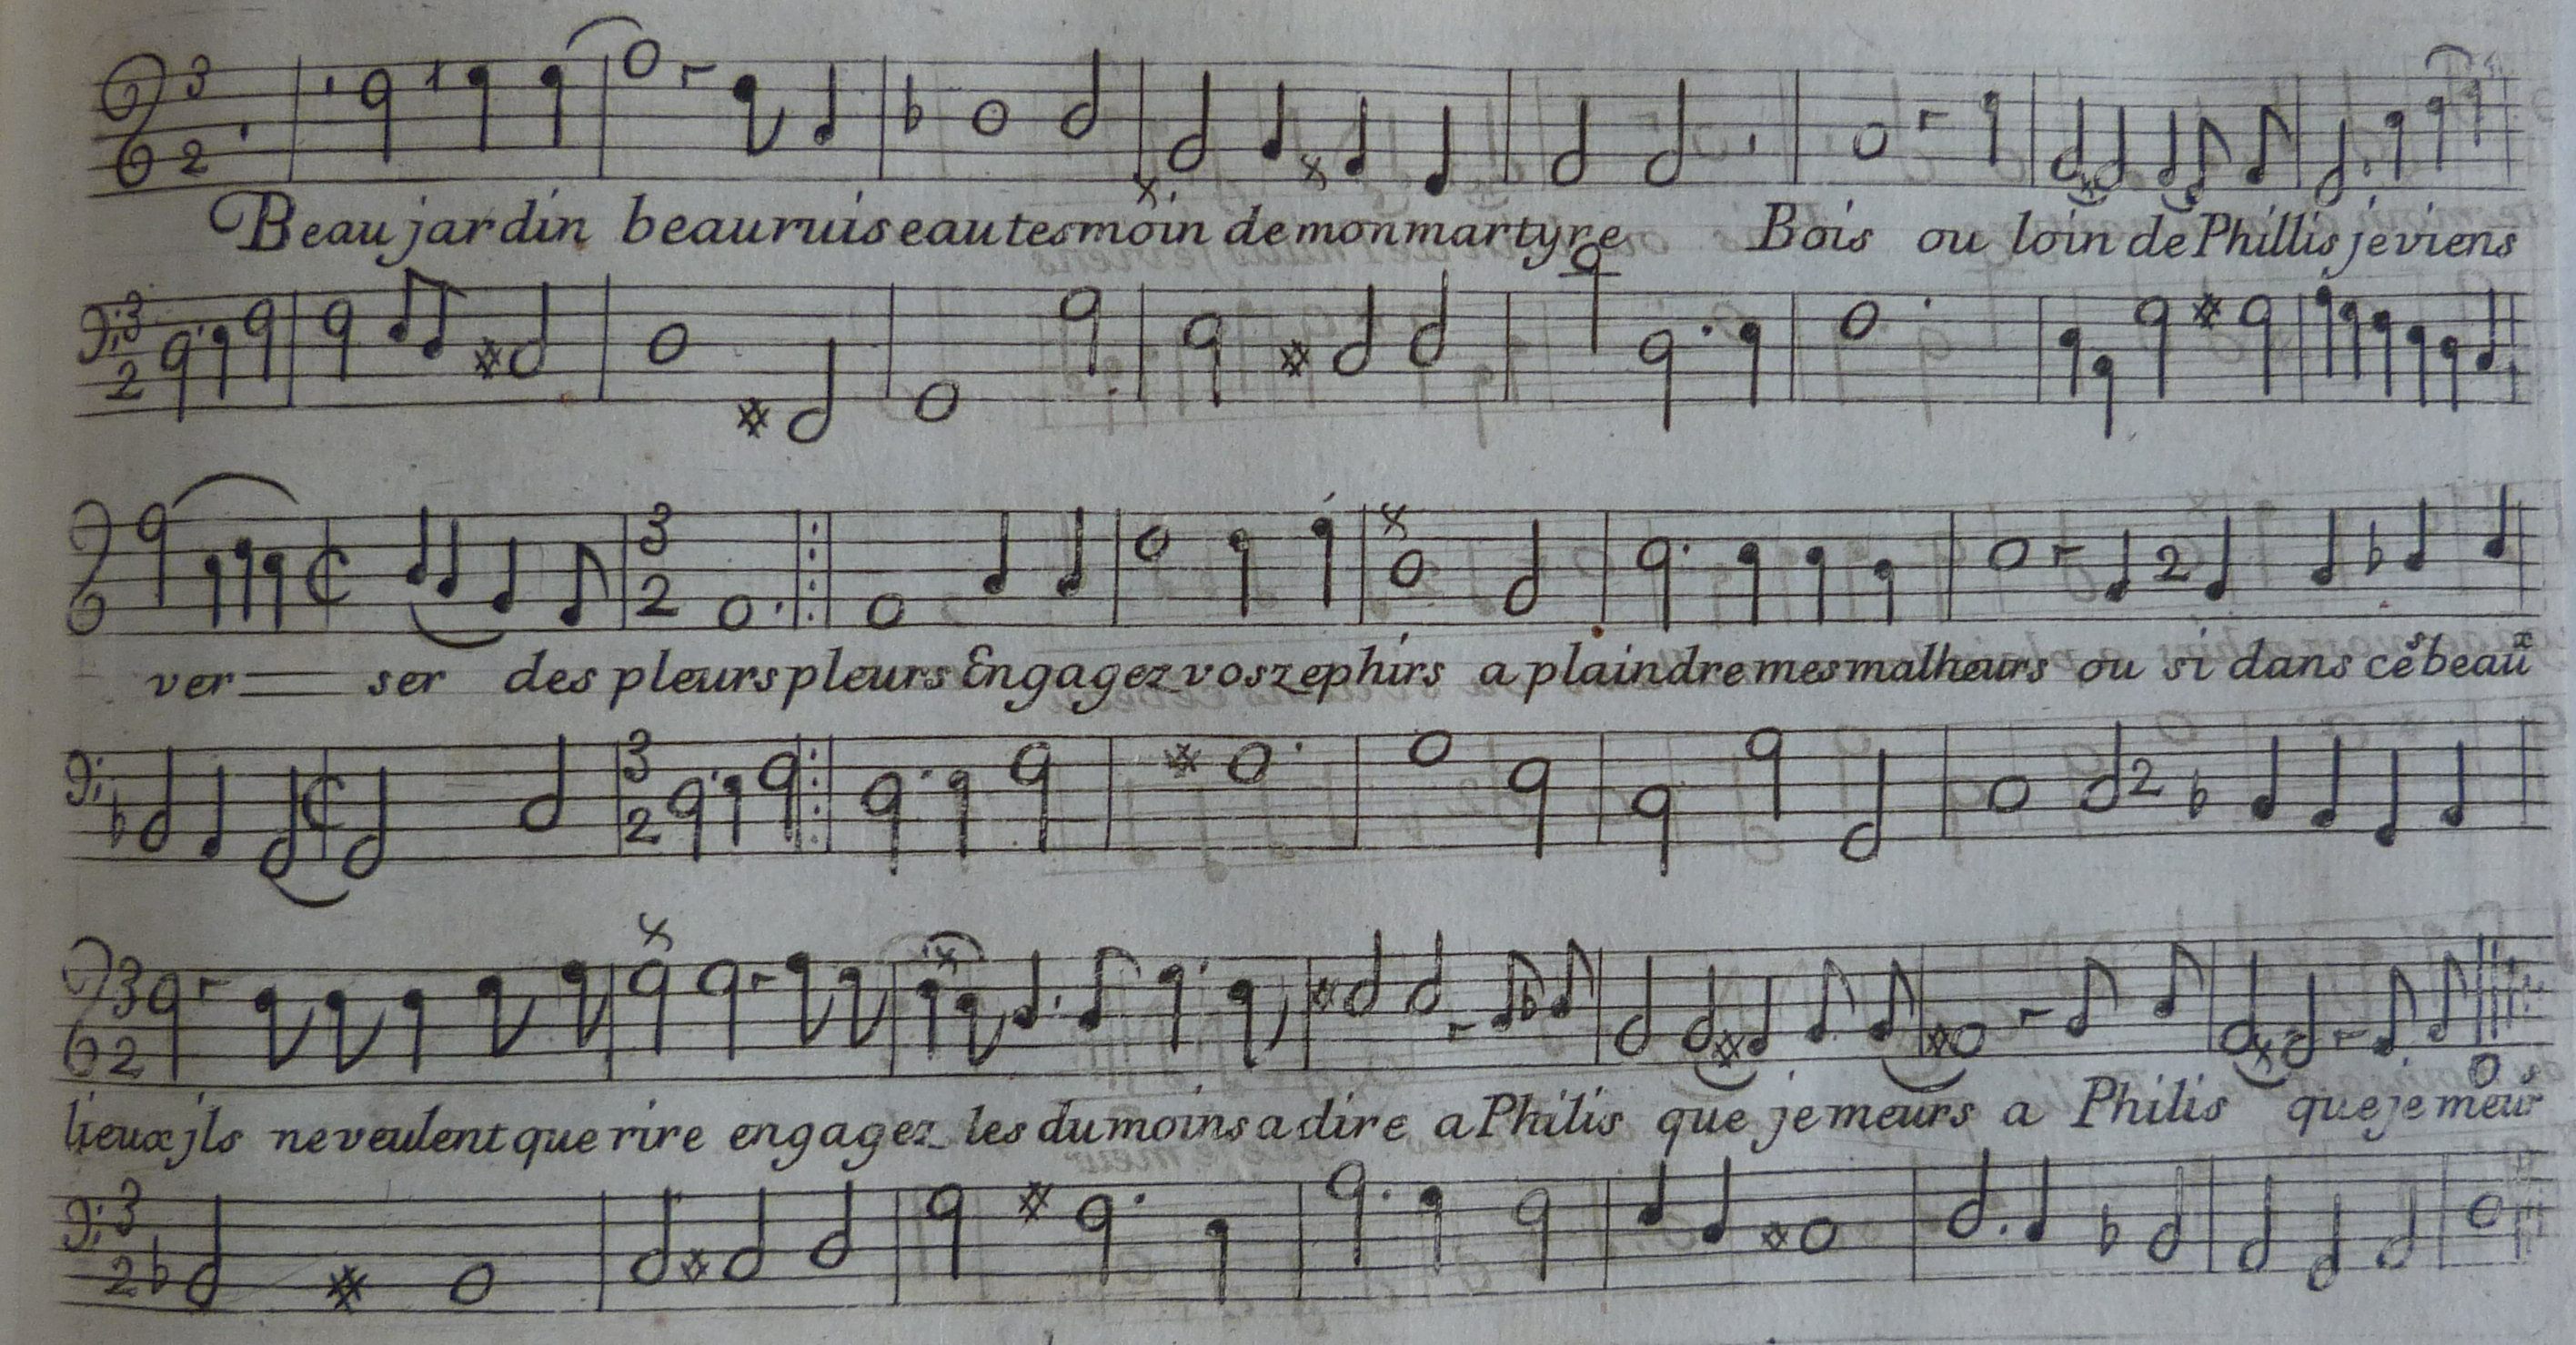 Beau jardin beau ruisseau tesmoin de mon martyre Bois ou loin de Phillis je viens
ver ser des pleurs pleurs Engagez vos zephirs a plaindre mes malheurs ou si dans cės beaux
lieux jls ne veulent que rire engagez les du moins a dire a Philis que je meurs a Philis que je meurs